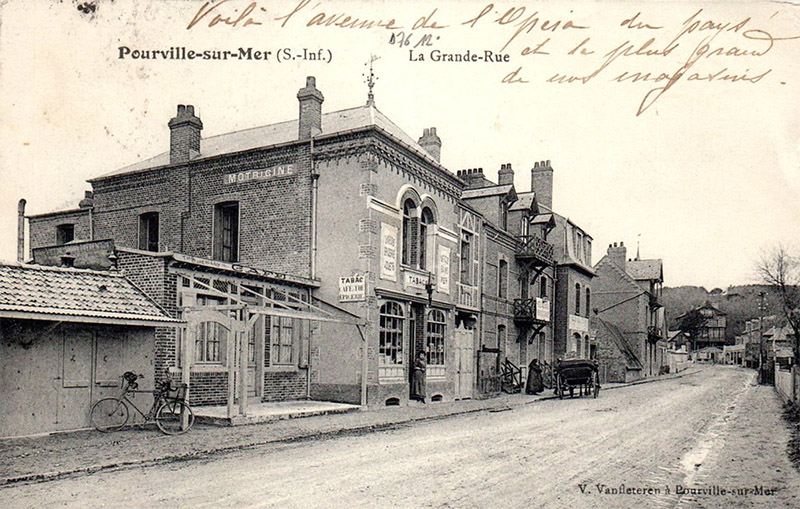 Voilà l'avenue de l'Opéra du pays
et le plus grand
de nos magasins.
D76 12
Pourville-sur-Mer (S.-Inf.)
La Grande-Rue
MOTRICINE
CAFÉ
TABAC
CAFÉ
EPICERIE
TABAC
V. Vanfleteren à Pourville-sur-Mer